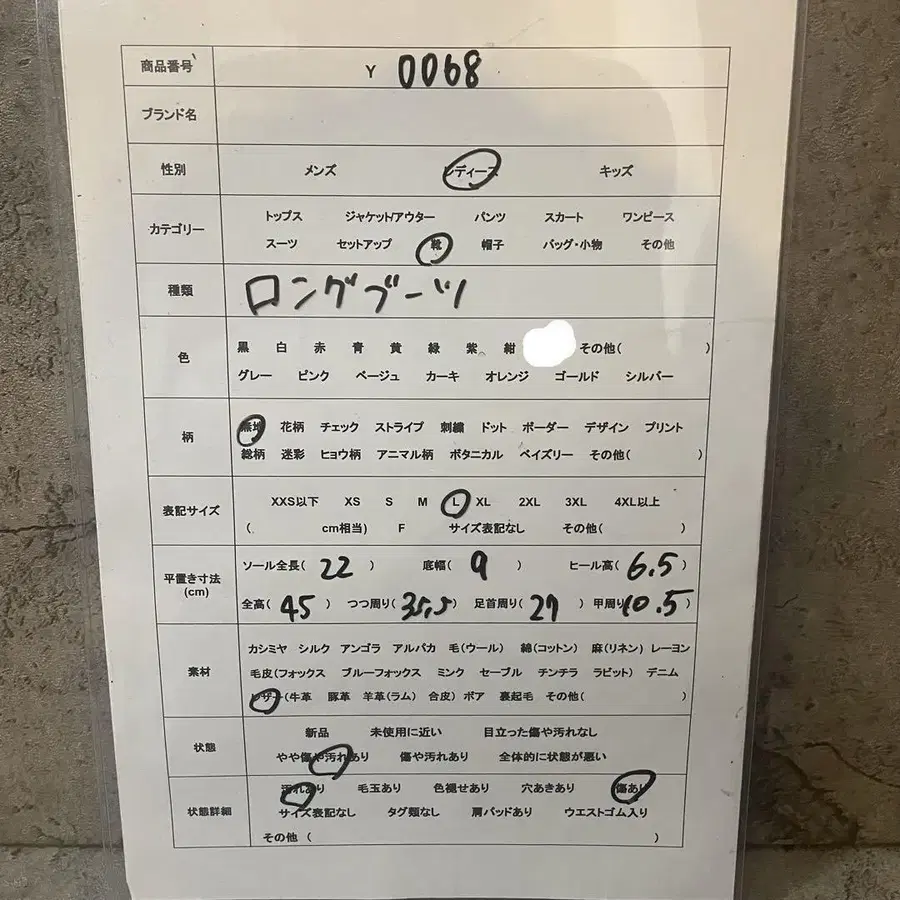 商品番号 Y 0068
ブランド名
性別 メンズ レディース キッズ
カテゴリー トップス ジャケット/アウター パンツ スカート ワンピース
スーツ セットアップ 靴 帽子 バッグ・小物 その他
種類 ロングブーツ
色 黒 白 赤 青 黄 緑 紫 紺 その他( )
グレー ピンク ベージュ カーキ オレンジ ゴールド シルバー
柄 無地 花柄 チェック ストライプ 刺繍 ドット ボーダー デザイン プリント
総柄 迷彩 ヒョウ柄 アニマル柄 ボタニカル ペイズリー その他( )
表記サイズ XXS以下 XS S M L XL 2XL 3XL 4XL以上
( cm相当) F サイズ表記なし その他( )
平置き寸法 (cm) ソール全長( 22 ) 底幅( 9 ) ヒール高( 6.5 )
全高( 45 ) つつ周り( 35.5 ) 足首周り( 27 ) 甲周り( 10.5 )
素材 カシミヤ シルク アンゴラ アルパカ 毛(ウール) 綿(コットン) 麻(リネン) レーヨン
毛皮(フォックス ブルーフォックス ミンク セーブル チンチラ ラビット) デニム
レザー(牛革 豚革 羊革(ラム) 合皮) ボア 裏起毛 その他( )
状態 新品 未使用に近い 目立った傷や汚れなし
やや傷や汚れあり 傷や汚れあり 全体的に状態が悪い
状態詳細 汚れあり 毛玉あり 色褪せあり 穴あきあり 傷あり
サイズ表記なし タグ類なし 肩パッドあり ウエストゴム入り
その他 ( )